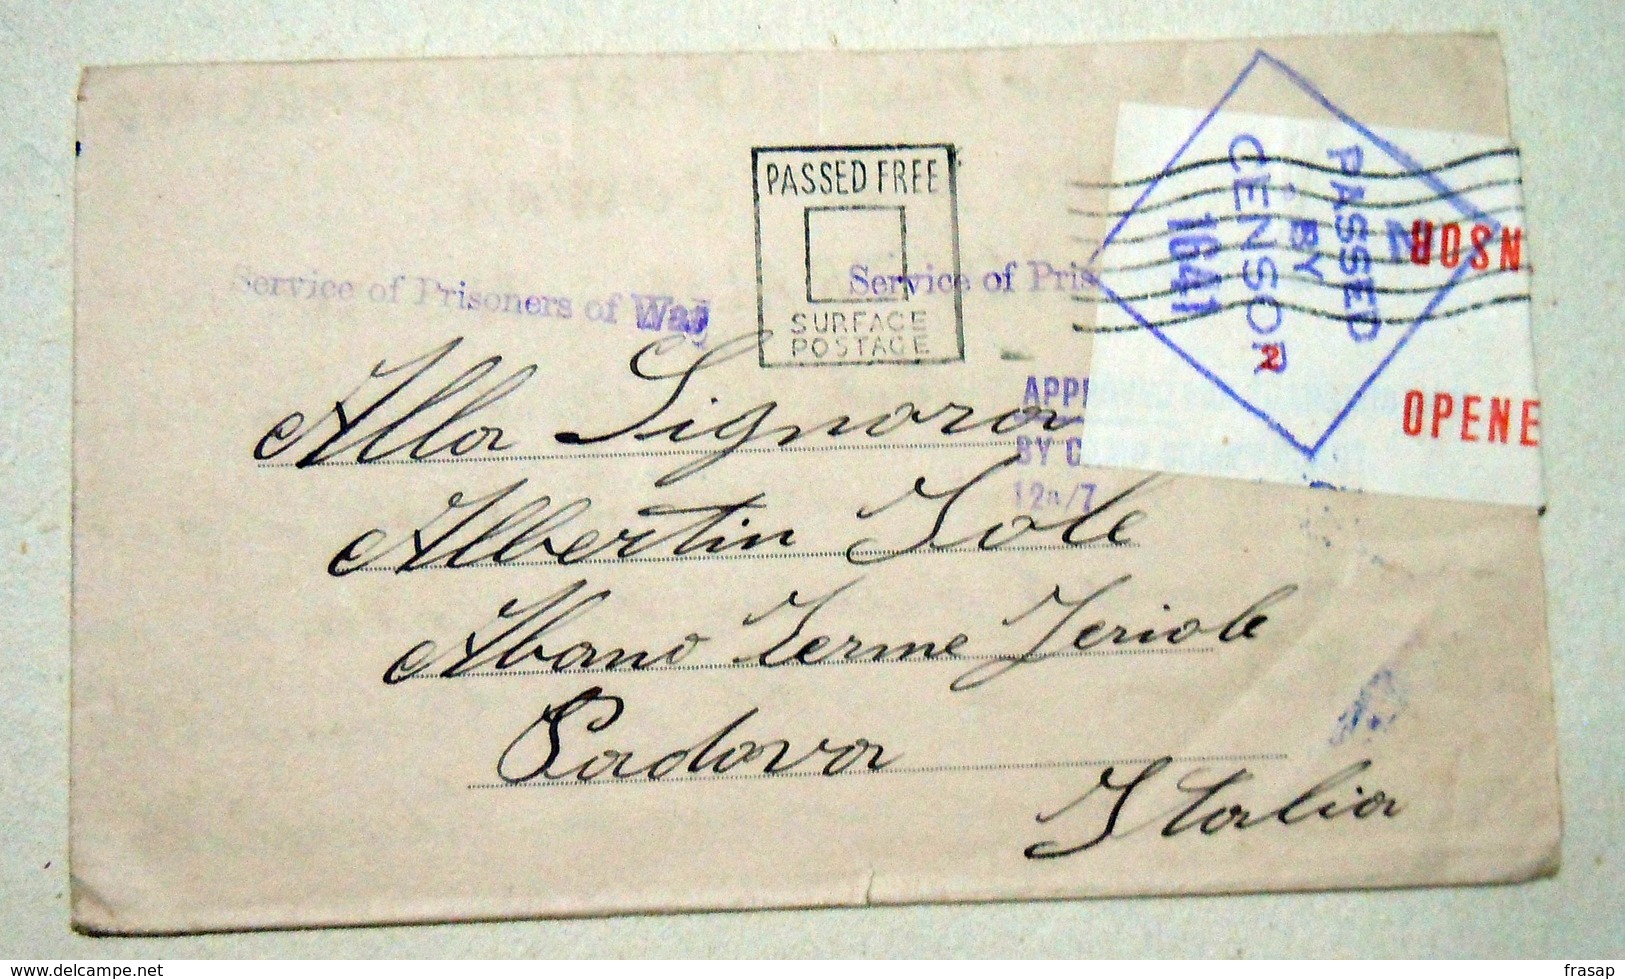 PASSED FREE
SURFACE
POSTAGE
Service of Prisoners of War
Service of Pris
PASSED
BY
CENSOR
1641
2
NSOR
2
OPENE
APP
BY C
12a/7
Alla Signora
Albertin Iole
Abano Terme Feriole
Padova
Italia
www.delcampe.net
frasap